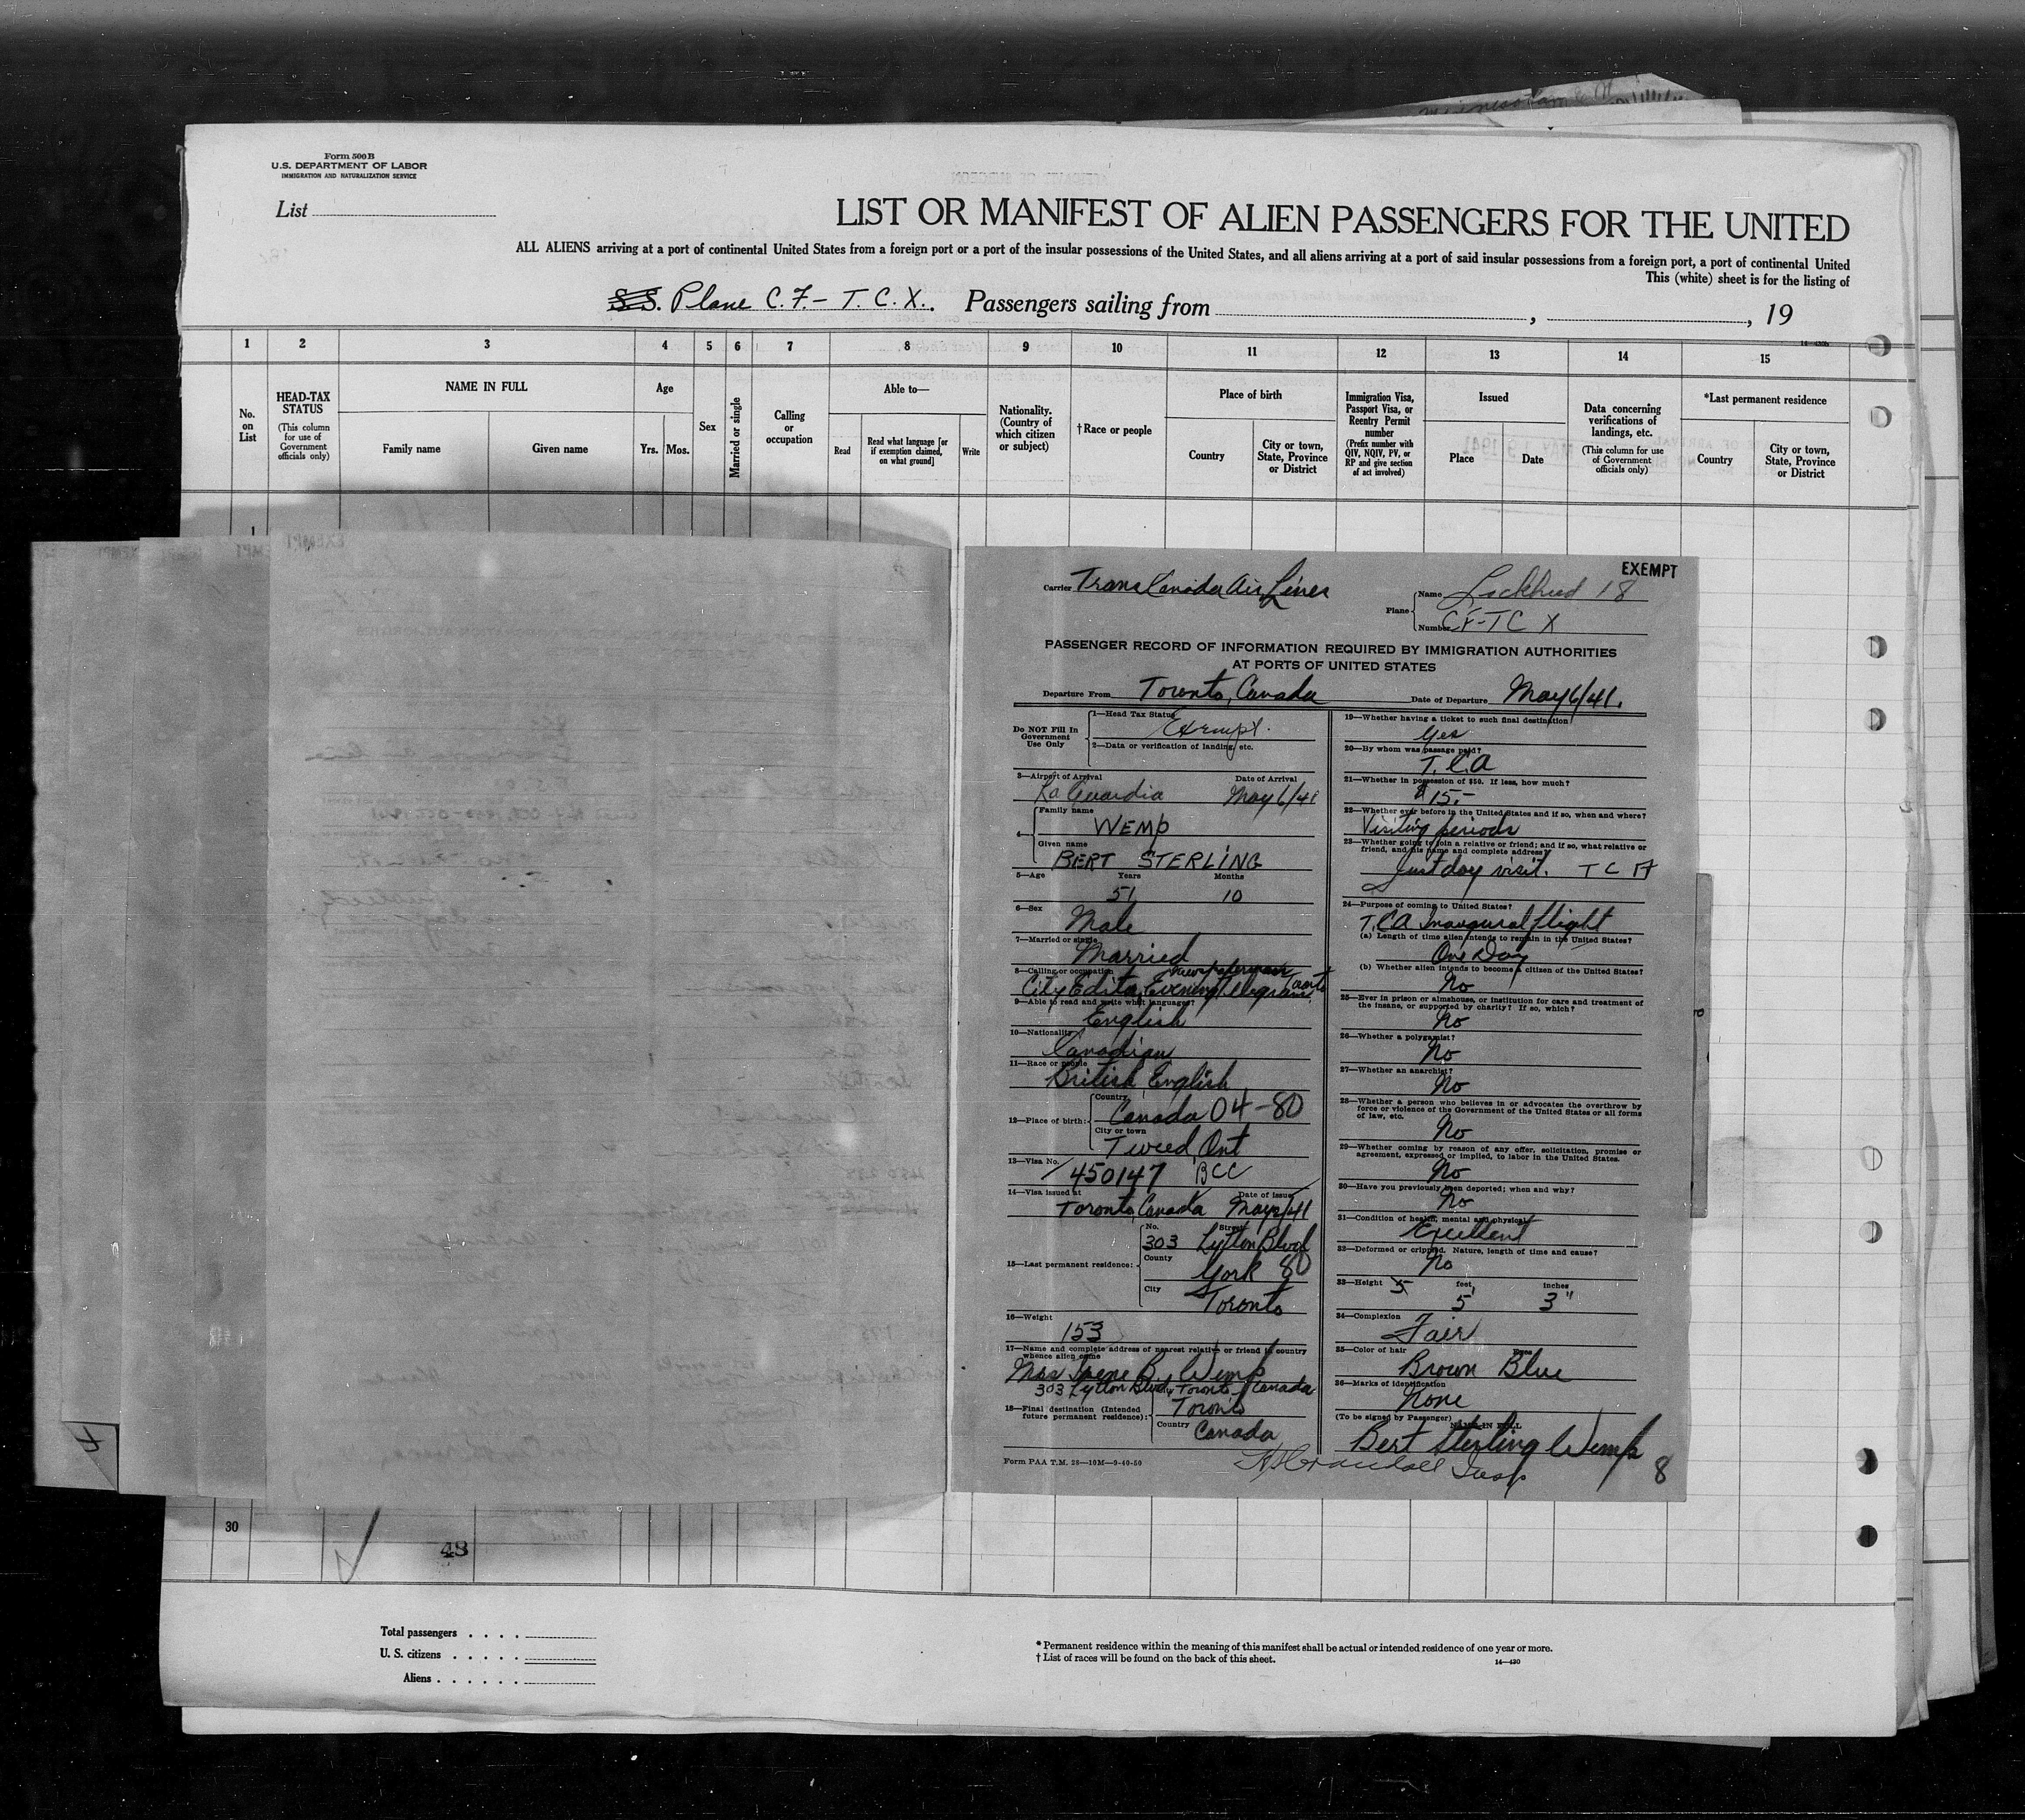 Form 500 B
U.S. DEPARTMENT OF LABOR
IMMIGRATION AND NATURALIZATION SERVICE
List
LIST OR MANIFEST OF ALIEN PASSENGERS FOR THE UNITED
ALL ALIENS arriving at a port of continental United States from a foreign port or a port of the insular possessions of the United States, and all aliens arriving at a port of said insular possessions from a foreign port, a port of continental United
This (white) sheet is for the listing of
S.S. Plane C. F. - T. C. X. Passengers sailing from , , 19
14—430b
1 2 3 4 5 6 7 8 9 10 11 12 13 14 15
No. on List
HEAD-TAX STATUS
(This column for use of Government officials only)
NAME IN FULL
Family name Given name
Age
Yrs. Mos.
Sex
Married or single
Calling or occupation
Able to—
Read
Read what language [or if exemption claimed, on what ground]
Write
Nationality. (Country of which citizen or subject)
†Race or people
Place of birth
Country
City or town, State, Province or District
Immigration Visa, Passport Visa, or Reentry Permit number
(Prefix number with QIV, NQIV, PV, or RP and give section of act involved)
Issued
Place Date
Data concerning verifications of landings, etc.
(This column for use of Government officials only)
*Last permanent residence
Country
City or town, State, Province or District
1
EXEMPT
Carrier Trans Canada Air Lines
Plane Name Lockheed 18
Number CF-TC X
PASSENGER RECORD OF INFORMATION REQUIRED BY IMMIGRATION AUTHORITIES
AT PORTS OF UNITED STATES
Departure From Toronto, Canada Date of Departure May 6/41.
Do NOT Fill In Government Use Only
1—Head Tax Status
Exempt.
2—Data or verification of landing, etc.
3—Airport of Arrival Date of Arrival
La Guardia May 6/41
4— Family name
WEMP
Given name
BERT STERLING
5—Age Years Months
51 10
6—Sex
Male
7—Married or single
Married
8—Calling or occupation newspaperman
City Editor Evening Telegram Toronto
9—Able to read and write what languages?
English
10—Nationality
Canadian
11—Race or people
British English
12—Place of birth: Country
Canada 04-80
City or town
Tweed, Ont
13—Visa No.
450147 BCC
14—Visa issued at Date of issue
Toronto, Canada May 2/41
15—Last permanent residence:
No. Street
303 Lytton Blvd
County
York 80
City
Toronto
16—Weight
153
17—Name and complete address of nearest relative or friend in country
whence alien came
Mrs Irene B. Wemp
303 Lytton Blvd, Toronto, Canada
18—Final destination (Intended future permanent residence):
Toronto
Country
Canada
Form PAA T.M. 28—10M—9-40-50
19—Whether having a ticket to such final destination
Yes
20—By whom was passage paid?
T.C.A
21—Whether in possession of $50. If less, how much?
$15.-
22—Whether ever before in the United States and if so, when and where?
Visiting periods
23—Whether going to join a relative or friend; and if so, what relative or
friend, and his name and complete address?
Just day visit. T C A
24—Purpose of coming to United States?
T.C.A Inaugural flight
(a) Length of time alien intends to remain in the United States?
One Day
(b) Whether alien intends to become a citizen of the United States?
No
25—Ever in prison or almshouse, or institution for care and treatment of
the insane, or supported by charity? If so, which?
No
26—Whether a polygamist?
No
27—Whether an anarchist?
No
28—Whether a person who believes in or advocates the overthrow by
force or violence of the Government of the United States or all forms
of law, etc.
No
29—Whether coming by reason of any offer, solicitation, promise or
agreement, expressed or implied, to labor in the United States.
No
30—Have you previously been deported; when and why?
No
31—Condition of health, mental and physical
Excellent
32—Deformed or crippled. Nature, length of time and cause?
No
33—Height 5 feet, inches
5 3"
34—Complexion
Fair
35—Color of hair Eyes
Brown Blue
36—Marks of identification
None
(To be signed by Passenger) NAME IN FULL
Bert Sterling Wemp
8
30
48
Total passengers
U. S. citizens
Aliens
* Permanent residence within the meaning of this manifest shall be actual or intended residence of one year or more.
† List of races will be found on the back of this sheet.
14—430